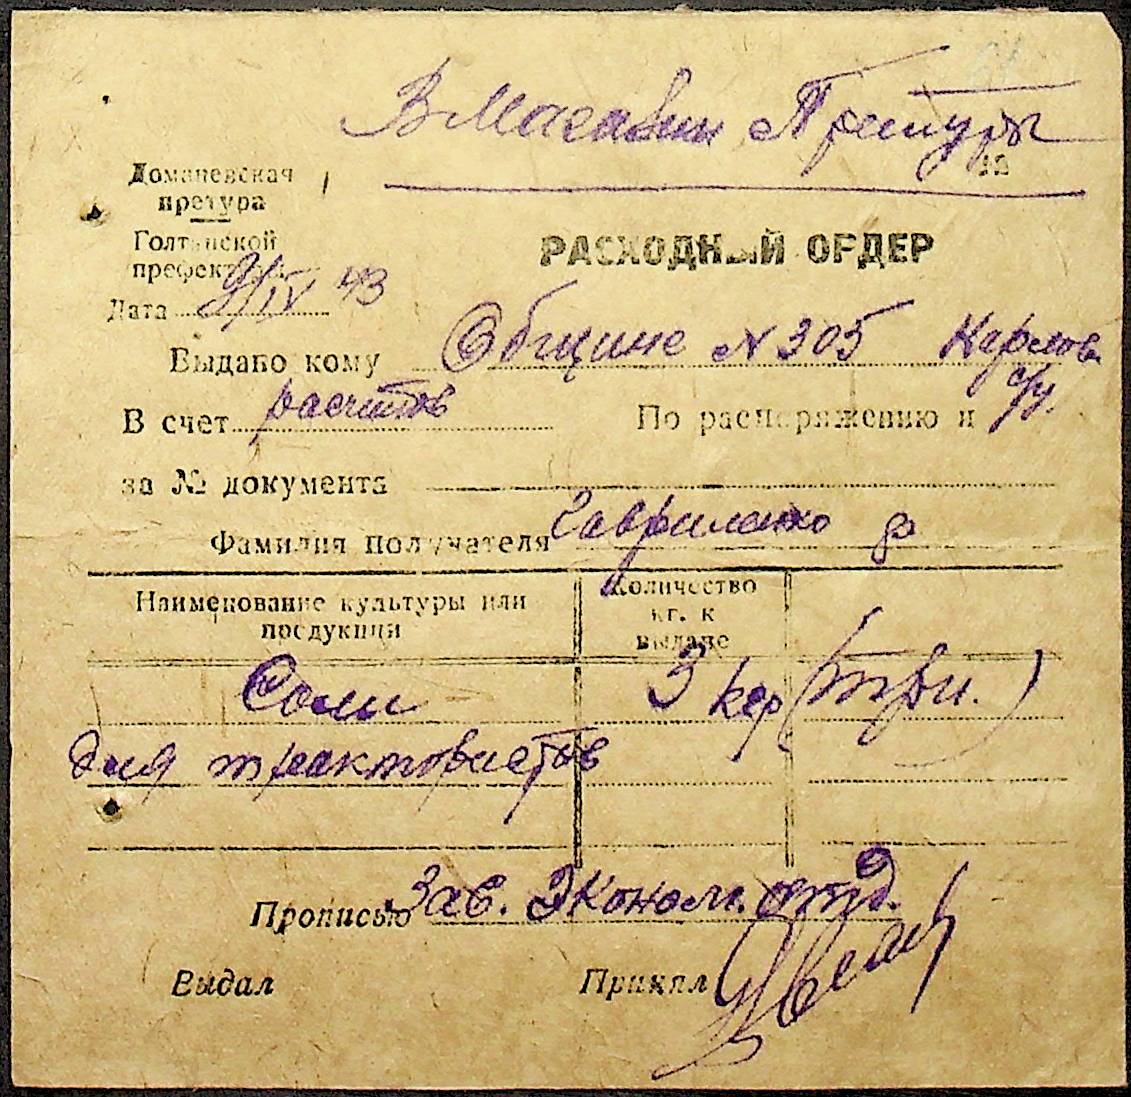 В Магазин Претуры
Доманевская
претура
№
Голтянской
префектуры
РАСХОДНЫЙ ОРДЕР
Дата 9/IV 43
Выдано кому Общине N 305 Карлов.
с/у.
В счет расчётов По распоряжению и
за № документа
Фамилия получателя Гавриленко
Наименование культуры или
продукции
Количество
кг. к
выдаче
Соли 3 кгр (три.)
для трактористов
Прописью Зав. Эконом. отд.
Выдал Принял